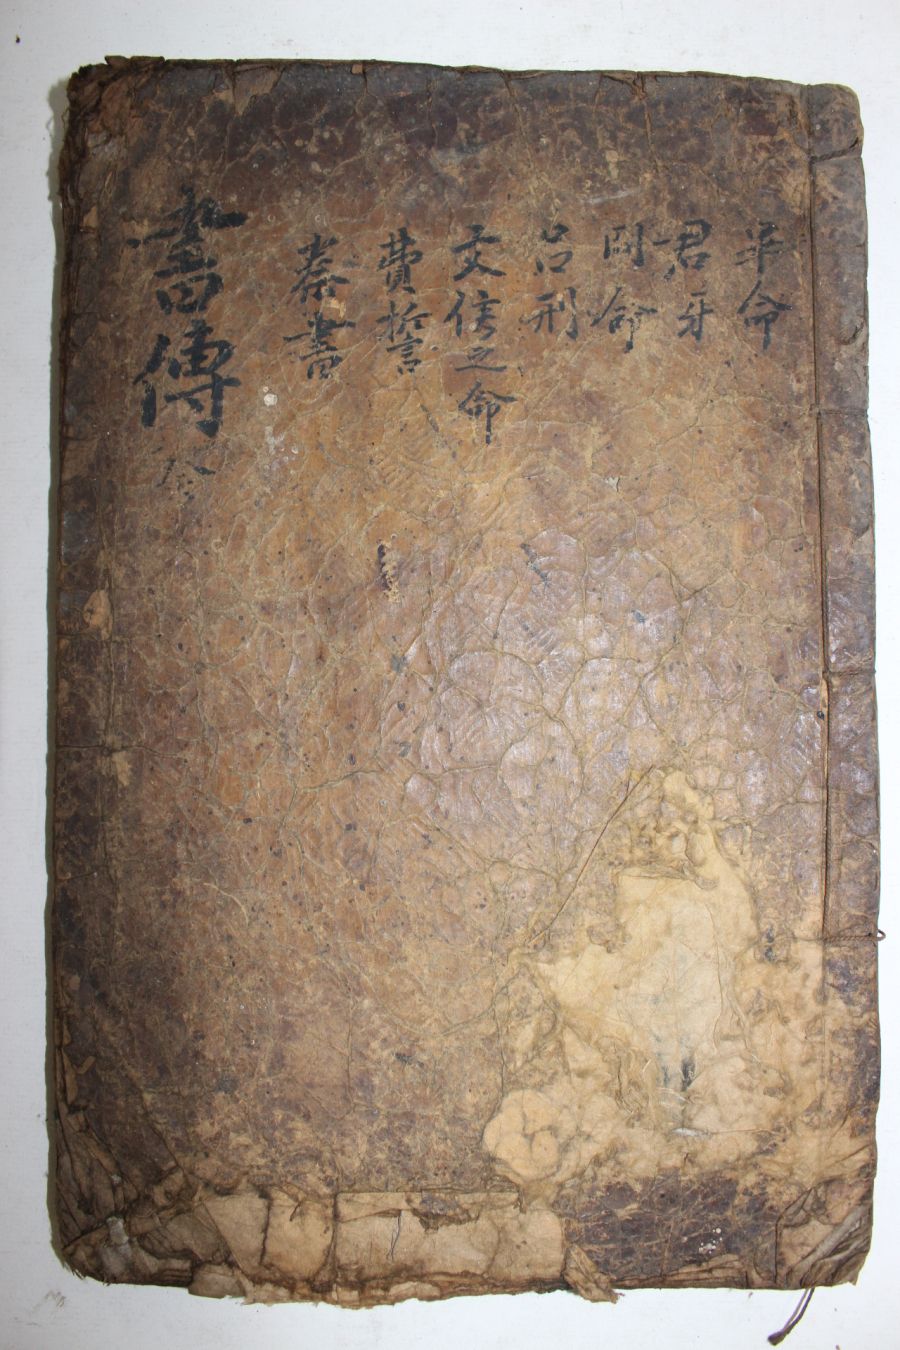 畢命
君牙
冏命
呂刑
文侯之命
費誓
秦書
書傳